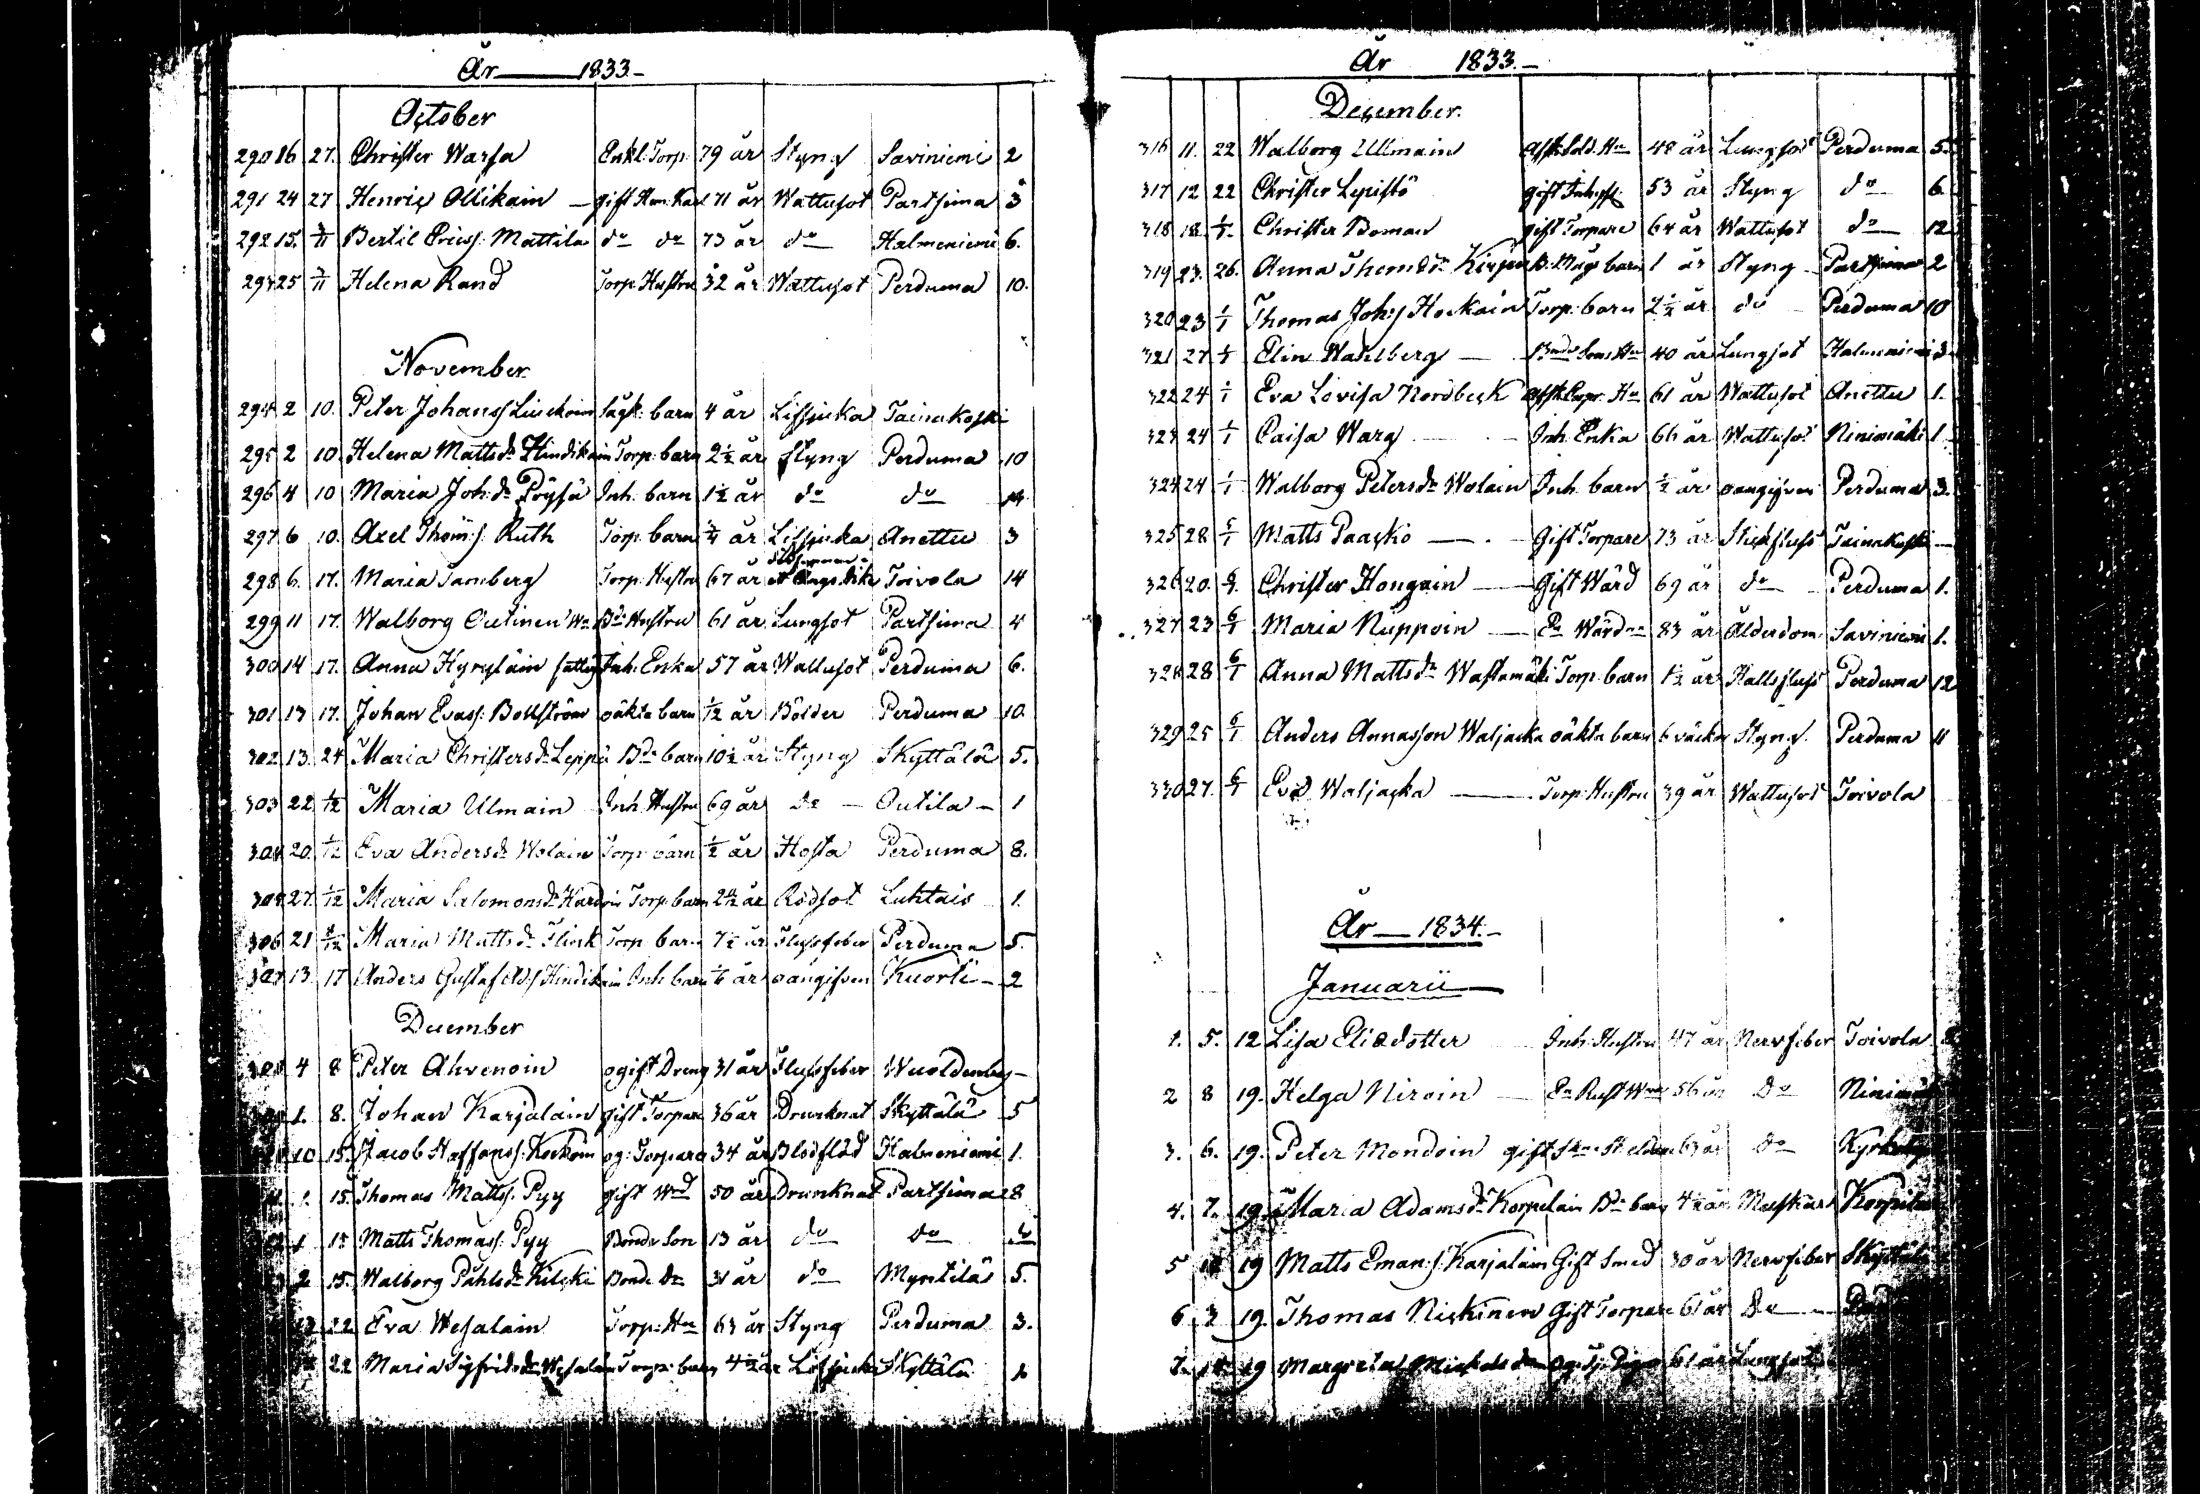 År 1833.
October
290 16 27. Christer Warsa Enkl. Torp. 79 år Styng Saviniemi 2
291 24 27 Henric Ollikain gift 71 år Wattusot Partsima 3
292 15. 3/11 Bertil Ericss. Mattila do do 73 år do Halmeniemi 6.
293 25 3/11 Helena Rand Torp. Hustru 32 år Wattusot Perduma 10.
November
294 2 10. Peter Johanss. barn 4 år Lifsjuka Tainakoski
295 2 10. Helena Mattsdr Hindikain Torp. barn 2 1/2 år Styng Perduma 10
296 4 10 Maria Joh:dr Pöysä Inh. barn 1 1/2 år do do 14
297 6 10. Axel Thom:s. Ruth Torp. barn år Lifsjuka Anettu 3
298 6. 17. Maria Tamberg Torp. Hustru 67 år Toivola 14
299 11 17. Walborg Outinen Bde Hustru 61 år Lungsot Partsima 4
300 14 17. Anna Hyryläin Inh. Enka 57 år Wattusot Perduma 6.
301 13 17. Johan Evass. Bollström oäkta barn 1/12 år Bölder Perduma 10.
302 13. 24 Maria Christersdr Leppä Bde barn 10 1/2 år Styng Skyttälä 5.
303 22 1/12 Maria Ulmain Inh. Hustru 69 år do Outila 1
304 20. 1/12 Eva Andersdr Wolain Torp. barn 1/2 år Hosta Perduma 8.
27. 1/12 Maria Salomonsdr Torp. barn år Rödsot Luhtais 1.
306 21 Maria Mattsdr Flink Torp. barn 7 1/2 år Flussfeber Perduma 5.
13. 17 Anders Gustaf Inh. barn år oangifven Kuorti 2
December
4 8 Peter Ahvenoin ogift Dreng 31 år Flussfeber
1. 8. Johan Karjalain gift Torpare 36 år Drunknat Skyttälä 5
10 15. Jacob Staffanss. Kockoin og. Torpare 34 år Blodflöd Halmeniemi 1.
1 15. Thomas Mattss. Pyy gift 50 år Drunknat Partsima 8
1 15 Matts Thomass. Pyy Bonde Son 13 år do do do
2 15. Walborg Påhlsdr Kilcki Bonde dr 31 år do Myntilä 5.
13 22 Eva Wesalain Torp. Hu 63 år Styng Perduma 3.
22 Maria Sigfridsdr Wesalain Torp. barn 4 1/2 år Lifsjuka Skyttälä 1
År 1833.
December.
316 11. 22 Walborg Ullmain Afsk. Sold. Hu 48 år Lungsot Perduma 5.
317 12 22 Christer Lepistö gift 53 år Styng do 6
318 18 1/1 Christer Boman gift Torpare 64 år Wattusot do 12
319 23. 26. Anna Thomsdr barn 1 år Styng Partsima 2
320 23 1/1 Thomas Joh:s. Hockain Torp. barn 2 1/2 år do Perduma 10
321 27 1/1 Elin Wahlberg Bonde Sons Hu 40 år Lungsot Halmeniemi 3
322 24 1/1 Eva Lovisa Nordbeck 61 år Wattusot Anettu 1.
323 24 1/1 Caisa Warg Inh. Enka 66 år Wattusot Ninimäki 1
324 24 1/1 Walborg Petersdr Wolain Inh. barn 1/2 år oangifven Perduma 3.
325 28 Matts Paacko Gift Torpare 73 år Stickfluss Tainakoski
326 20. Christer Hongain Gift Wärd 69 år do Perduma 1.
327 23 6/1 Maria Nuppoin 83 år Ålderdom Saviniemi 1.
328 28 6/1 Anna Mattsdr Wastamäki Torp. barn 1 1/2 år Hallsfluss Perduma 12
329 25 6/1 Anders Annasson Waljacka oäkta barn 6 väckor Styng. Perduma 11
330 27. 6/1 Eva Waljacka Torp. Hustru 39 år Wattusot Toivola
År 1834.
Januarii
1. 5. 12 Lisa Eliædotter Inh. Hustru 47 år Nervfeber Toivola 8
2 8 19. Helga Niroin 56 år Do
3. 6. 19. Peter Mondoin gift 63 år Do
4. 7. 19. Maria Adamsdr Korpelain Bde barn 4 1/2 år
5 19 Matts Eman:s. Karjalain Gift Smed 30 år Nervfeber Skyttälä
6 3 19. Thomas Nickinen Gift Torpare 61 år Do
7. 19 Margreta Mickelsdr 61 år Lungsot